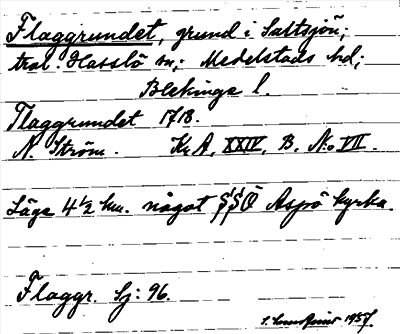 Flaggrundet, grund i Saltsjön;
tral. Hasslö sn; Medelstads hd;
Blekinge l.
Flaggrundet 1718.
N. Ström. Kr. A, XXIV, B, No VII.
Läge 4½ km. något SSO Aspö kyrka.
Flaggr. Sj: 96.
1957.